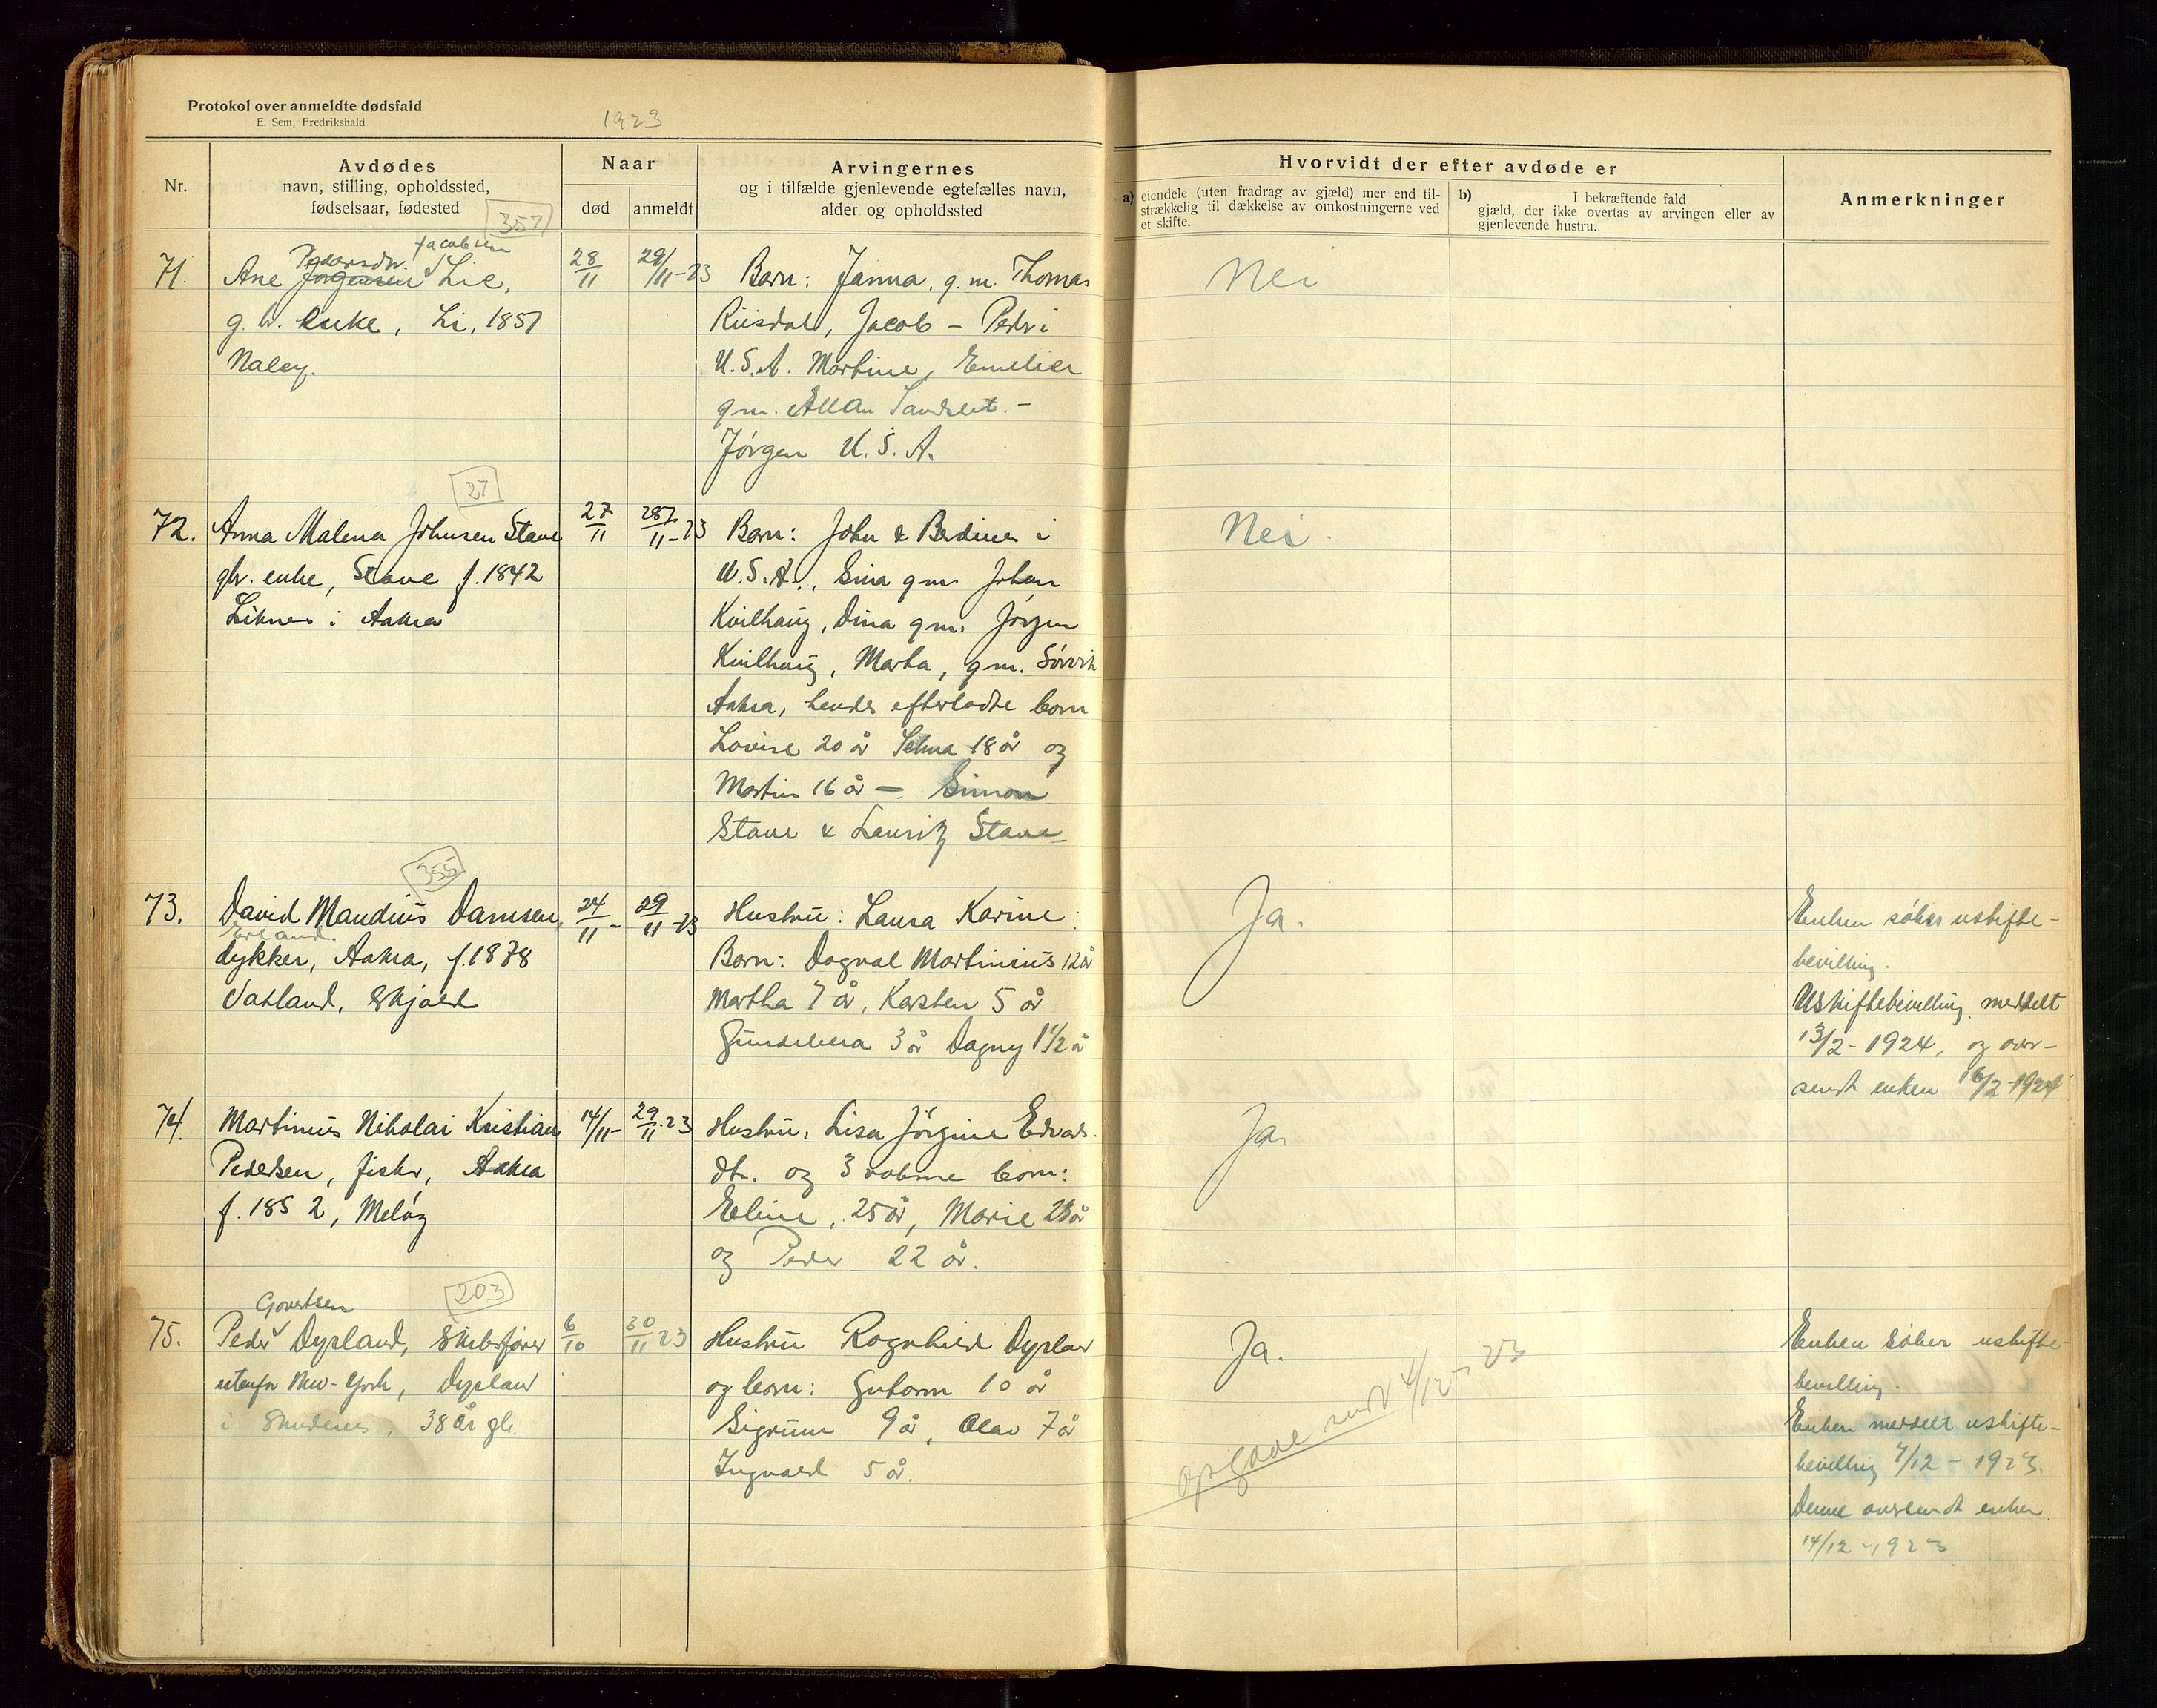 Protokol over anmeldte dødsfald
E. Sem, Fredrikshald
1923
Nr.
Avdødes
navn, stilling, opholdssted,
fødselsaar, fødested
Naar
død
anmeldt
Arvingernes
og i tilfælde gjenlevende egtefælles navn,
alder og opholdssted
Hvorvidt der efter avdøde er
a) eiendele (uten fradrag av gjæld) mer end til-
strækkelig til dækkelse av omkostningerne ved
et skifte.
b) I bekræftende fald
gjæld, der ikke overtas av arvingen eller av
gjenlevende hustru.
Anmerkninger
357
71.
Pedersdtr. Jacobsen
Ane Jørgensen Lie,
g. br. enke, Li, 1857
28/11
29/11-23
Barn: Janna, g. m. Thomas
Riisdal, Jacob - Peder i
U.S.A. Martine, Emelie
g m. Allan Sandslet. -
Jørgen U. S. A.
Nei
27
72.
Anna Malena Johnsen Stave
gbr. enke, Stave f. 1842
Liknes i Aakra
27/11
28/11-23
Barn: John & Berdines i
U.S.A., Sina g m. Johan
Kvilhaug, Dina g m. Jørgen
Kvilhaug, Marta, g m. Sørvik
Aakra, hendes efterladte barn
Lovise 20 år Selma 18 år og
Martin 16 år - Simon
Stave & Lauritz Stave
Nei.
355
73.
David Maudius Damsen,
Erland.
dykker, Aakra, f. 1878
Vatland, Skjold
24/11-
29/11-23
Hustru: Laura Karine.
Barn: Dagval Martinius 12 år
Martha 7 år, Karsten 5 år
3 år Dagny 1 1/2 å
Ja.
Enken søker uskifte-
bevilling.
Uskiftebevilling meddelt
13/2-1924, og over-
sendt enken 16/2-1924
74.
Martinus Nikolai Kristian
Pedersen, fisker, Aakra
f. 1852, Meløy
14/11-
29/11-23
Hustru, Lisa Jørgine Edvads
dtr. og 3 voksne barn:
Eline, 25 år, Marie 23 år
og Peder 22 år.
Ja
203
75.
Govertsen
Peder Dyrland, Skibsfører
utenfor New-York, Dyrland
i Skudenes, 38 år gl.
6/10
30/11 23
Hustru Ragnhild Dyrland
og barn: Gutorm 10 år
Sigrunn 9 år, Olav 7 år
Ingvald 5 år.
Ja.
opgave sendt 4/12-23
Enken søker uskifte-
bevilling.
Enken meddelt uskifte-
bevilling 7/12-1923.
Denne oversendt enken.
14/12-1923